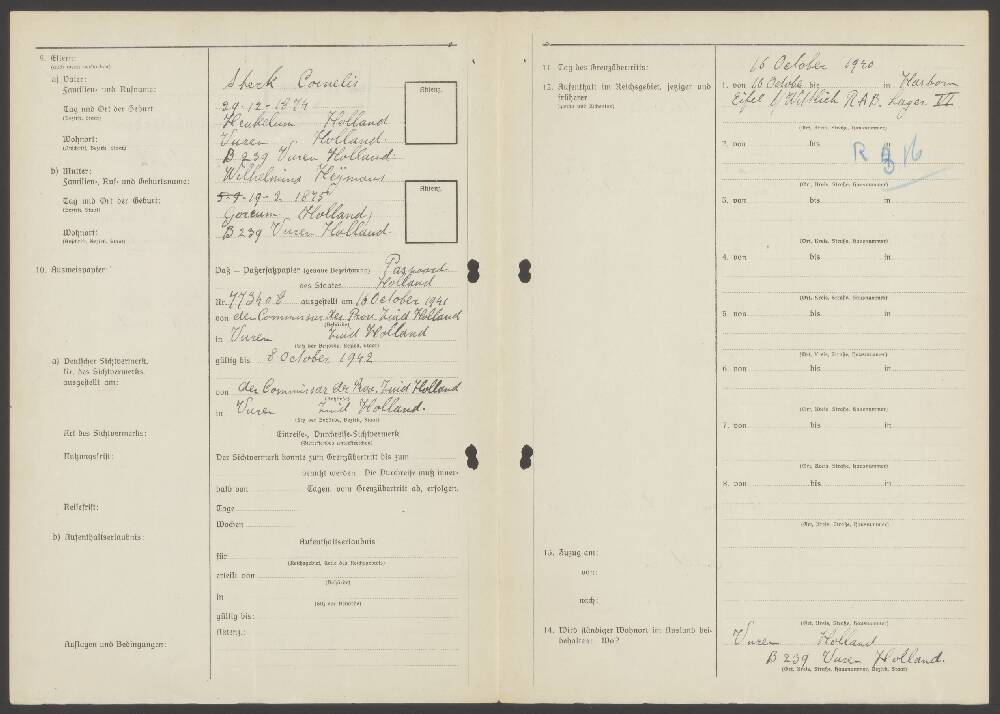 9. Eltern:
(auch wenn verstorben)
a) Vater:
Familien- und Rufname:
Sterk Cornelis
Aktenz.
Tag und Ort der Geburt
(Bezirk, Staat)
29-12-1874
Heukelum Holland
Wohnort:
(Ortschaft, Bezirk, Staat)
Vuren Holland
B 239 Vuren Holland.
b) Mutter:
Familien-, Ruf- und Geburtsname:
Wilhelmina Heijmans
Aktenz.
Tag und Ort der Geburt:
(Bezirk, Staat)
19-2 1875
Gorcum (Holland)
Wohnort:
(Ortschaft, Bezirk, Staat)
B 239 Vuren Holland.
10. Ausweispapier:
Paß — Paßersatzpapier (genaue Bezeichnung)
des Staates Holland
Nr. ausgestellt am 16 October
von den Commissar der Prov. Zuid Holland
(Behörde)
in Vuren Zuid Holland
(Sitz der Behörde, Bezirk, Staat)
gültig bis 8 October 1942
a) Deutscher Sichtvermerk.
Nr. des Sichtvermerks
ausgestellt am:
von den Commissar der Prov. Zuid Holland
(Behörde)
in Vuren Zuid Holland.
(Sitz der Behörde, Bezirk, Staat)
Art des Sichtvermerks:
Einreise-, Durchreise-Sichtvermerk
(Nichtzutreffendes unterstreichen)
Nutzungsfrist:
Der Sichtvermerk konnte zum Grenzübertritt bis zum
benutzt werden. Die Durchreise muß inner-
halb von Tagen, vom Grenzübertritt ab, erfolgen.
Reisefrist:
Tage
Wochen
b) Aufenthaltserlaubnis:
Aufenthaltserlaubnis
für
(Reichsgebiet, Teile des Reichsgebiets)
erteilt von
(Behörde)
in
(Sitz der Behörde)
gültig bis:
Aktenz.:
Auflagen und Bedingungen:
11. Tag des Grenzübertritts:
16 October 1940
12. Aufenthalt im Reichsgebiet, jetziger und
früherer
1. von 16 October bis in
Eifel b/ Wittlich R.A.B. Lager II
(Ort, Kreis, Straße, Hausnummer)
2. von bis in
(Ort, Kreis, Straße, Hausnummer)
3. von bis in
(Ort, Kreis, Straße, Hausnummer)
4. von bis in
(Ort, Kreis, Straße, Hausnummer)
5. von bis in
(Ort, Kreis, Straße, Hausnummer)
6. von bis in
(Ort, Kreis, Straße, Hausnummer)
7. von bis in
(Ort, Kreis, Straße, Hausnummer)
8. von bis in
(Ort, Kreis, Straße, Hausnummer)
13. Zuzug am:
von:
nach:
(Ort, Kreis, Straße, Hausnummer)
14. Wird ständiger Wohnort im Ausland bei-
behalten: Wo?
Vuren Holland
B 239 Vuren Holland.
(Ort, Kreis, Straße, Hausnummer, Bezirk, Staat)